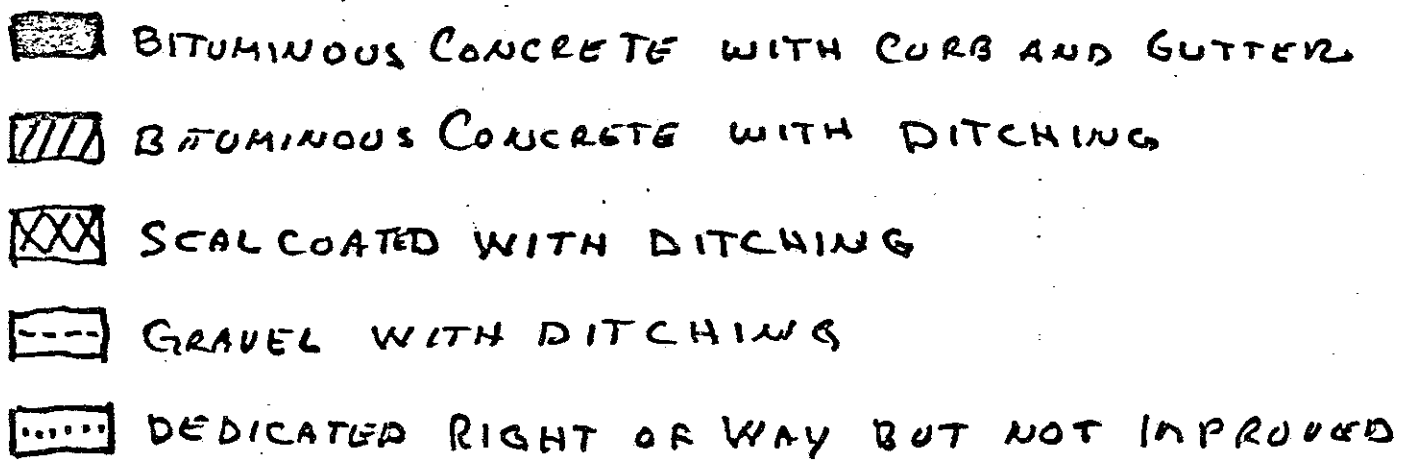 BITUMINOUS CONCRETE WITH CURB AND GUTTER
BITUMINOUS CONCRETE WITH DITCHING
SEALCOATED WITH DITCHING
GRAVEL WITH DITCHING
DEDICATED RIGHT OF WAY BUT NOT IMPROVED